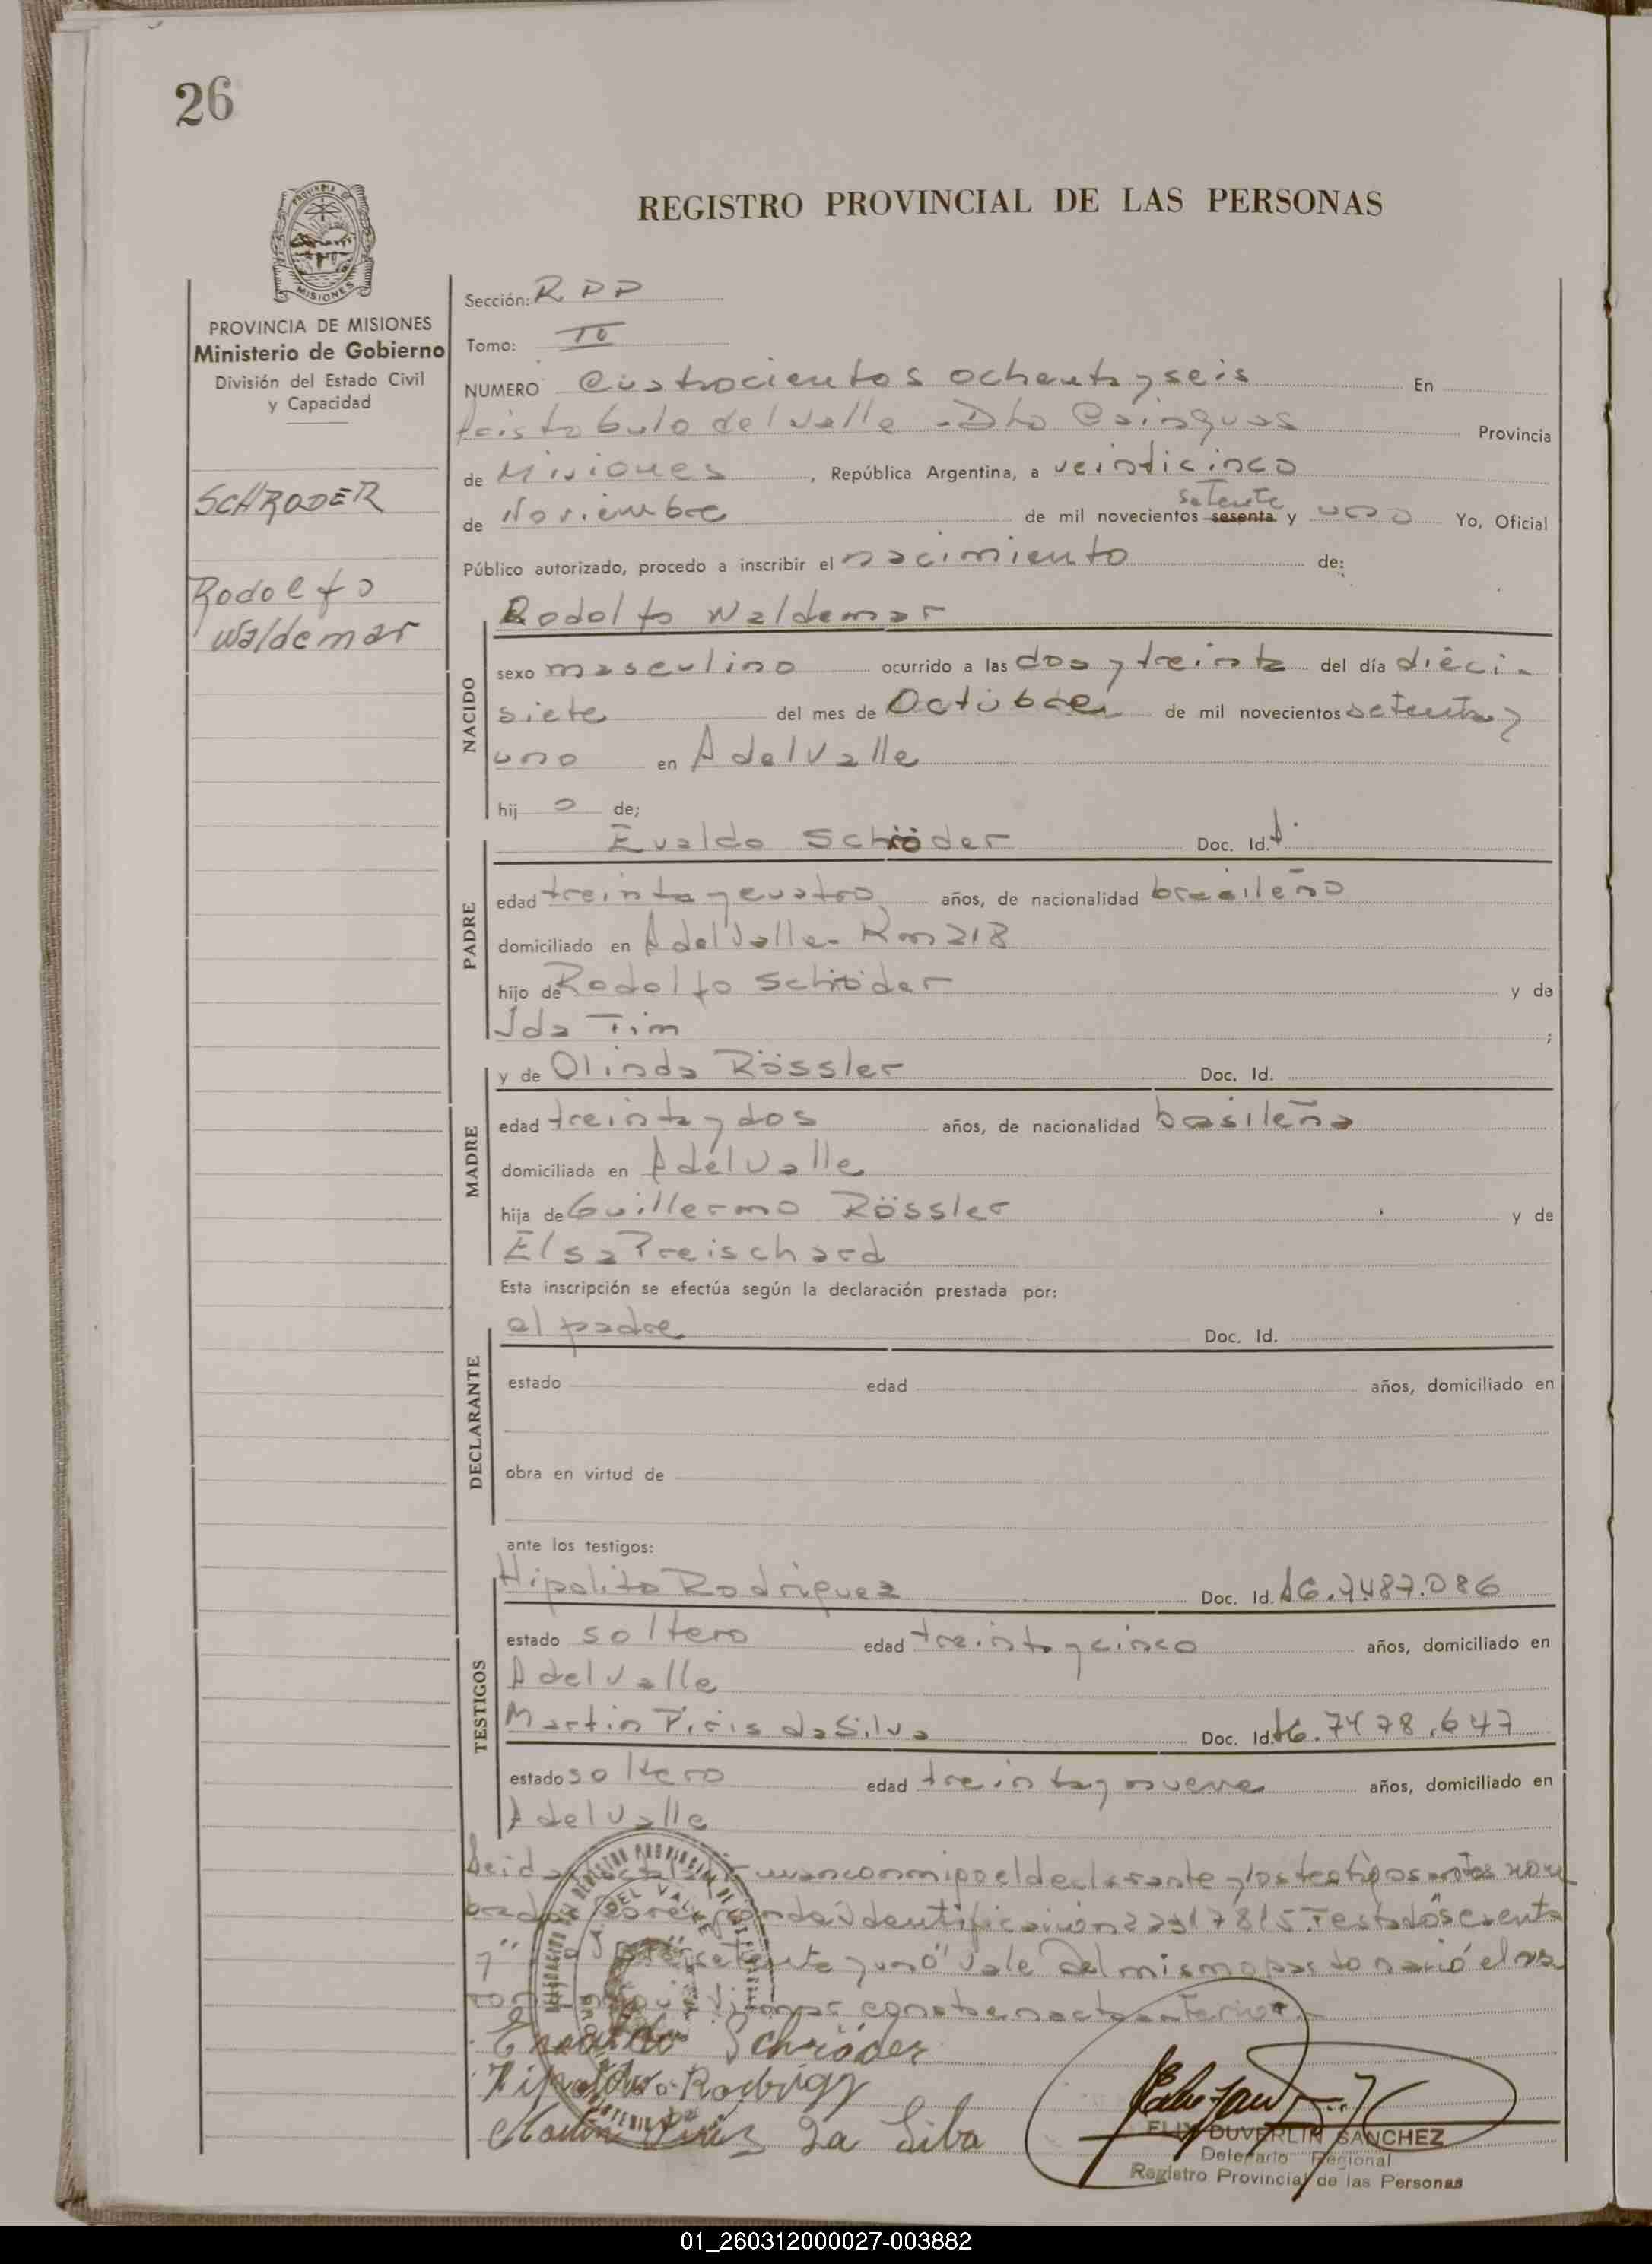 26
REGISTRO PROVINCIAL DE LAS PERSONAS
MISIONES
PROVINCIA DE MISIONES
Ministerio de Gobierno
División del Estado Civil
y Capacidad
SCHRODER
Rodolfo
Waldemar
Sección:
Tomo:
NUMERO Cuatrocientos ochenta y seis En
Aristobulo del Valle - Dto Cainguas Provincia
de Misiones, República Argentina, a veinticinco
setenta
de Noviembre de mil novecientos sesenta y uno Yo, Oficial
Público autorizado, procedo a inscribir el nacimiento de:
Rodolfo Waldemar
NACIDO
sexo masculino ocurrido a las dos y treinta del día dieci-
siete del mes de Octubre de mil novecientos setenta y
uno en A del Valle
hij o de;
Evaldo Schröder Doc. Id.
PADRE
edad treinta y cuatro años, de nacionalidad brasileño
domiciliado en A del Valle - Km 218
hijo de Rodolfo Schröder y de
Ida Tim ;
y de Olinda Rössler Doc. Id.
MADRE
edad treinta y dos años, de nacionalidad basileña
domiciliada en A del Valle
hija de Guillermo Rössler y de
Elsa Preischard
Esta inscripción se efectúa según la declaración prestada por:
el padre Doc. Id.
DECLARANTE
estado edad años, domiciliado en
obra en virtud de
ante los testigos:
Hipolito Rodriguez Doc. Id. 7.487.086
TESTIGOS
estado soltero edad treinta y cinco años, domiciliado en
A del Valle
Martin Piris da Silva Doc. Id. 7478.647
estado soltero edad treinta y nueve años, domiciliado en
A del Valle
Leida conmigo el declarante y los testigos antes nom
brados identificación Testado "sesenta
y" setenta y uno" vale del mismo parto nació el va
ron consta en acta anterior
Evaldo Schröder
Martin Piris Da Silba
DUVERLIN SANCHEZ
Delegado Regional
Registro Provincial de las Personas
01_260312000027-003882